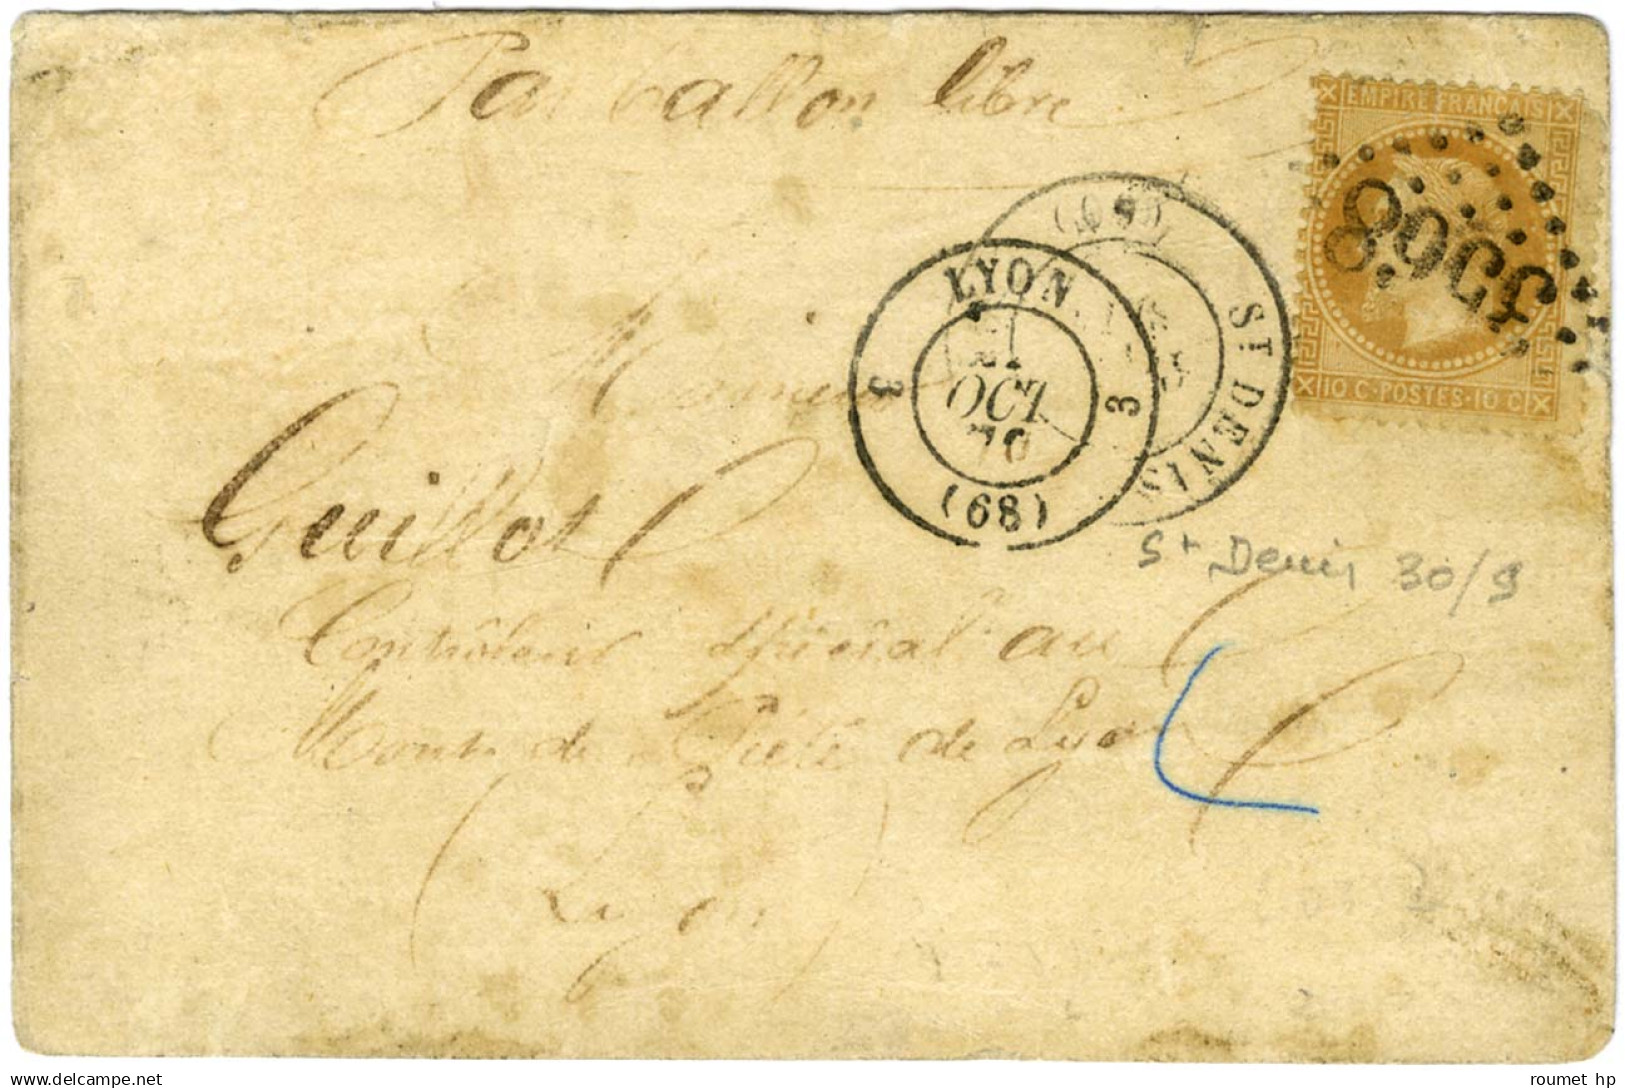 Par ballon libre
EMPIRE FRANCAIS
3568
10 C·POSTES·10 C
(60)
ST DENIS
LYON
3 21 3
OCT
70
(68)
Monsieur
Guillot
St Denis 30/9
Contrôleur spécial au
Mont de Piété de Lyon
(Lyon)
roumet hp